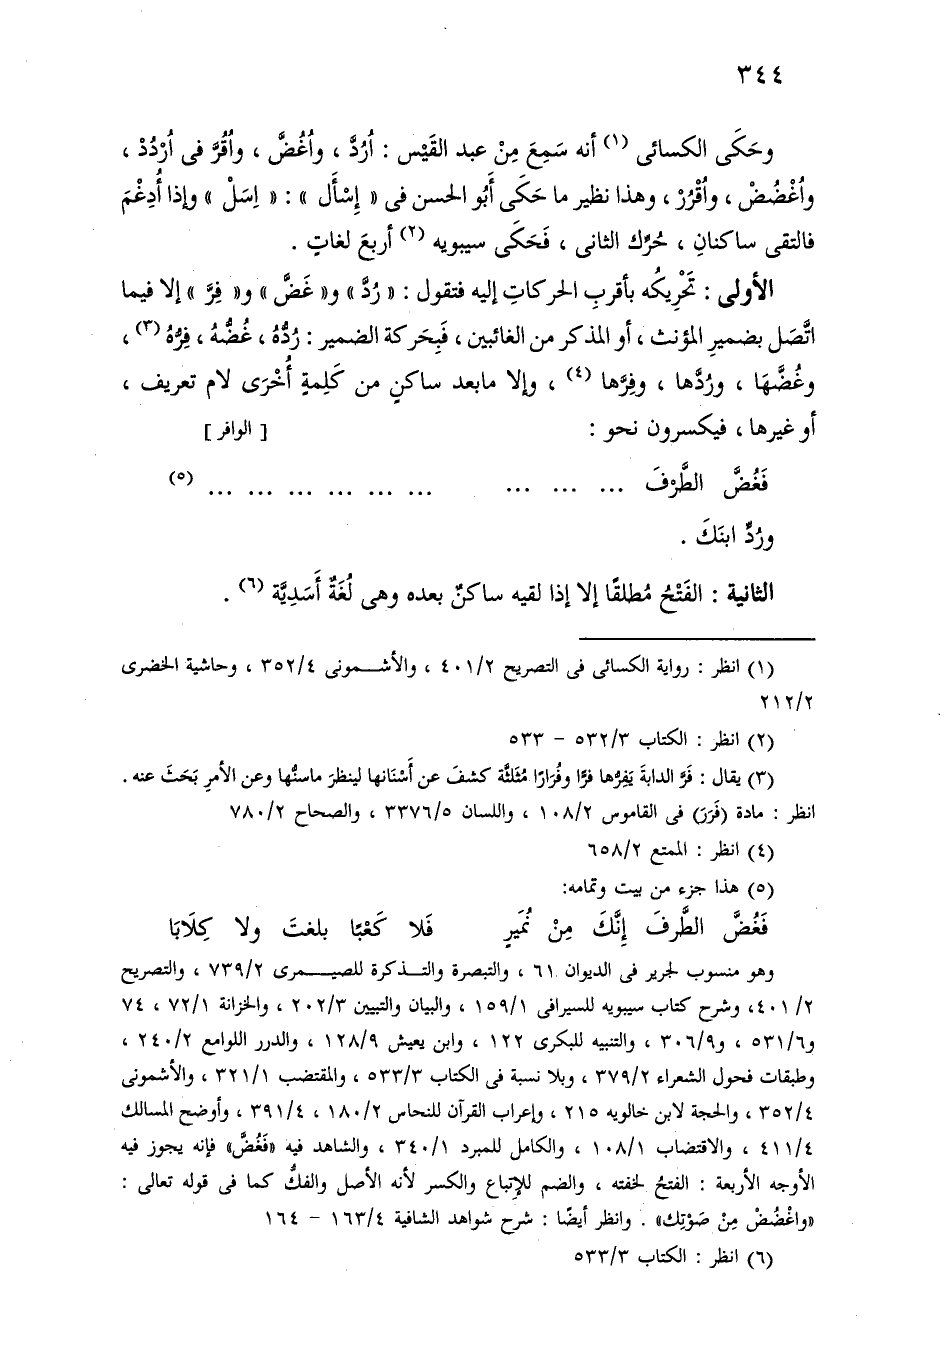 ٣٤٤
وحَكَى الكسائى (١) أنه سَمِعَ مِنْ عبد القَيْس : اُرُدَّ ، واُغُضَّ ، واُقُرَّ فى اُرْدُدْ ،
واُغْضُضْ ، واُقْرُرْ ، وهذا نظير ما حَكَى أَبُو الحسن فى « إسْأَل » : « اِسَلْ » وإذا أُدِغْمَ
فالتقى ساكنانِ ، حُرّك الثانى ، فَحَكَى سيبويه (٢) أربعَ لغاتٍ .
الأولى : تَحْرِيكُه بأقربِ الحركاتِ إليه فتقول : « رُدَّ » و« غَضَّ » و« فِرَّ » إلا فيما
اتَّصَل بضميرِ المؤنث ، أو المذكر من الغائبين ، فَبِحَركة الضمير : رُدُّهُ ، غُضُّهُ ، فِرُّهُ (٣) ،
وغُضَّهَا ، ورُدَّها ، وفِرَّها (٤) ، وإلا مابعد ساكنٍ من كَلِمةٍ أُخْرَى لام تعريف ،
أو غيرها ، فيكسرون نحو : [ الوافر ]
فَغُضَّ الطَّرْفَ ... ... ... ... ... ... ... ... ... (٥)
ورُدِّ ابنَكَ .
الثانية : الفَتْحُ مُطلقًا إلا إذا لقيه ساكنٌ بعده وهى لُغَةٌ أَسَدِيَّة (٦) .
(١) انظر : رواية الكسائى فى التصريح ٤٠١/٢ ، والأشــمونى ٣٥٢/٤ ، وحاشية الخضرى
٢١٢/٢
(٢) انظر : الكتاب ٥٣٢/٣ – ٥٣٣
(٣) يقال : فَرَّ الدابةَ يَفِرُّها فرًّا وفُرَارًا مُثَلَثَّة كشفَ عن أَسْنَانها لينظرَ ماسنُّها وعن الأمرِ بَحَثَ عنه .
انظر : مادة (فَرَرَ) فى القاموس ١٠٨/٢ ، واللسان ٣٣٧٦/٥ ، والصحاح ٧٨٠/٢
(٤) انظر : الممتع ٦٥٨/٢
(٥) هذا جزء من بيت وتمامه:
فَغُضَّ الطَّرفَ إِنَّكَ مِنْ نُمَيرٍ فَلا كَعْبًا بلغتَ ولا كِلَابَا
وهو منسوب لجرير فى الديوان ٦١ ، والتبصرة والتــذكرة للصيــمرى ٧٣٩/٢ ، والتصريح
٤٠١/٢، وشرح كتاب سيبويه للسيرافى ١٥٩/١ ، والبيان والتبيين ٢٠٢/٣ ، والخزانة ٧٢/١ ، ٧٤
و٥٣١/٦ ، و٣٠٦/٩ ، والتنبيه للبكرى ١٢٢ ، وابن يعيش ١٢٨/٩ ، والدرر اللوامع ٢٤٠/٢ ،
وطبقات فحول الشعراء ٣٧٩/٢ ، وبلا نسبة فى الكتاب ٥٣٣/٣ ، والمقتضب ٣٢١/١ ، والأشمونى
٣٥٢/٤ ، والحجة لابن خالويه ٢١٥ ، وإعراب القرآن للنحاس ١٨٠/٢ ، ٣٩١/٤ ، وأوضح المسالك
٤١١/٤ ، والاقتضاب ١٠٨/١ ، والكامل للمبرد ٣٤٠/١ ، والشاهد فيه «فَغُضَّ» فإنه يجوز فيه
الأوجه الأربعة : الفتحُ لخفته ، والضم للإِتباع والكسر لأنه الأصل والفكُّ كما فى قوله تعالى :
«واغْضُضْ مِنْ صَوْتِك» . وانظر أيضًا : شرح شواهد الشافية ١٦٣/٤ – ١٦٤
(٦) انظر : الكتاب ٥٣٣/٣